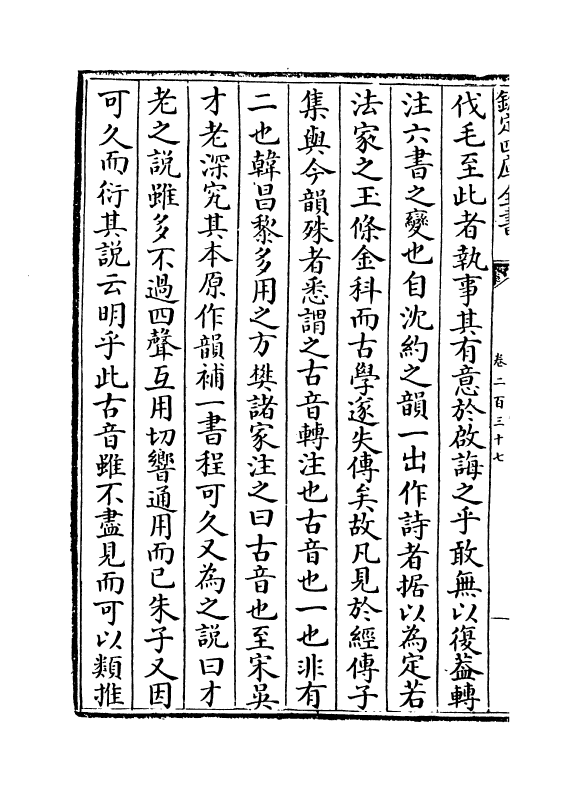 欽定四庫全書
卷二百三十七
伐毛至此者執事其有意於啟誨之乎敢無以復葢轉
注六書之變也自沈約之韻一出作詩者据以為定若
法家之玉條金科而古學遂失傳矣故凡見於經傳子
集與今韻殊者悉謂之古音轉注也古音也一也非有
二也韓昌黎多用之方樊諸家注之曰古音也至宋吳
才老深究其本原作韻補一書程可久又為之説曰才
老之説雖多不過四聲互用切響通用而已朱子又因
可久而衍其説云明乎此古音雖不盡見而可以類推